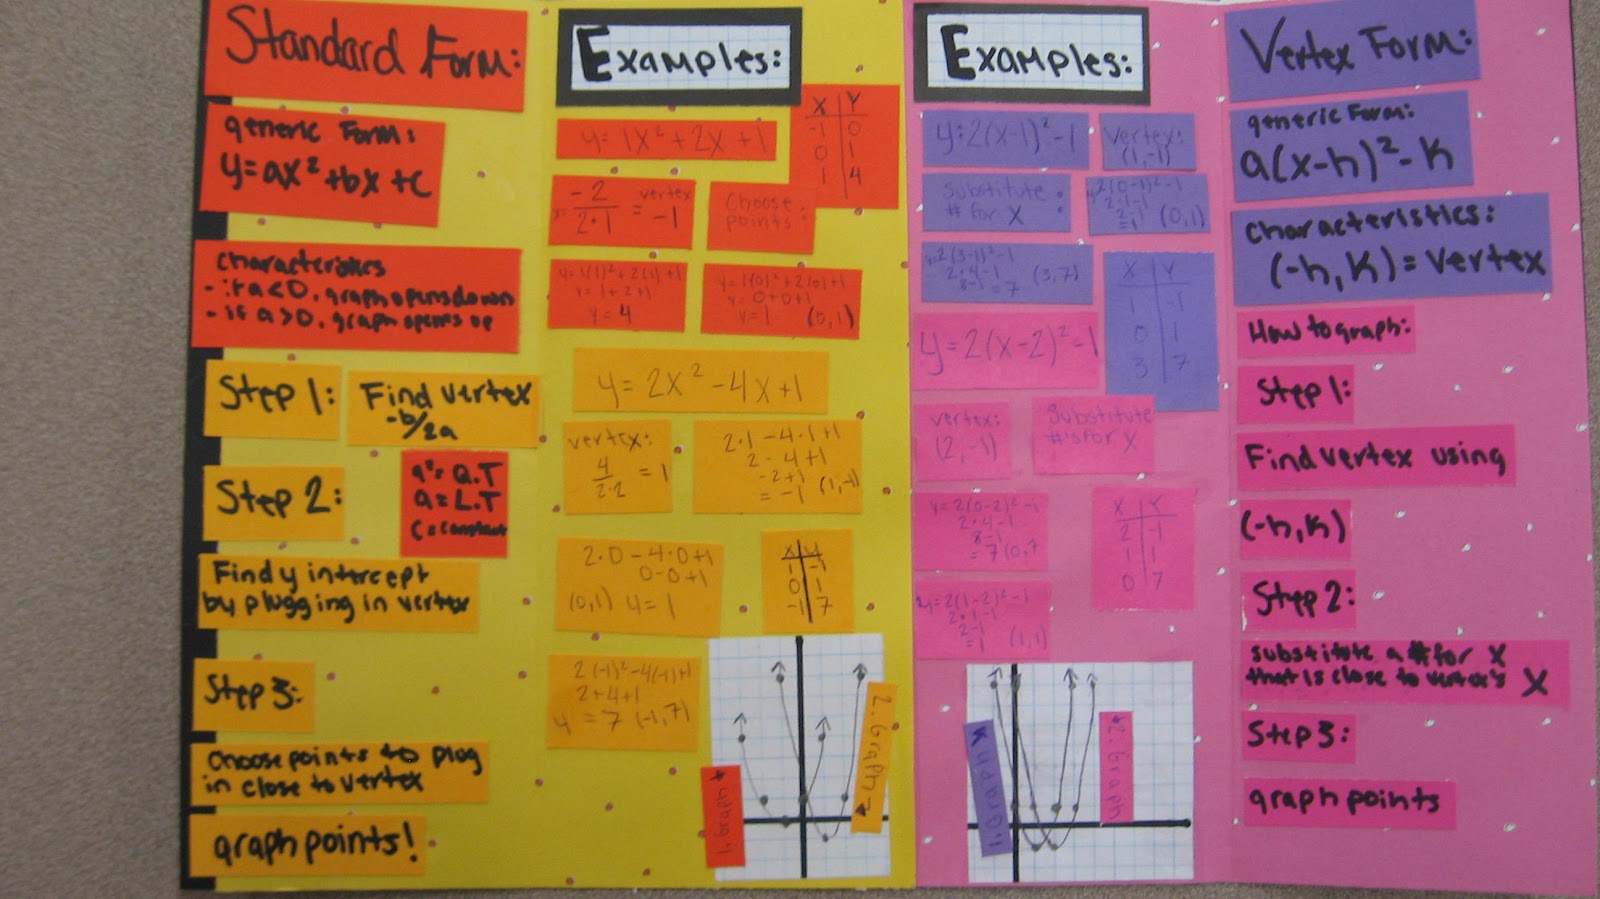 Standard Form:
generic Form:
y=ax²+bx+c
characteristics
- if a<0, graph opens down
- if a>0, graph opens up
Step 1:
Find vertex
-b/2a
Step 2:
a²= Q.T
a = L.T
C = constant
Find y intercept
by plugging in vertex
Step 3:
choose points to plug
in close to vertex
graph points!
Examples:
y= 1x²+2x+1
X Y
-1 0
0 1
1 4
x= -2/2·1 = vertex -1
Choose
points:
y=1(1)²+2(1)+1
y=1+2+1
y= 4
y=1(0)²+2(0)+1
y=0+0+1
y=1 (0,1)
y= 2x²-4x+1
vertex:
4/2·2 = 1
2·1-4·1+1
2-4+1
-2+1
= -1 (1,-1)
2·0-4·0+1
0-0+1
(0,1) y=1
X Y
1 -1
0 1
-1 7
2(-1)²-4(-1)+1
2+4+1
y = 7 (-1,7)
1.graph
2.Graph
Examples:
y=2(x-1)²-1
vertex:
(1,-1)
Substitute
# for X
2(0-1)²-1
2·1-1
=1 (0,1)
y=2(3-1)²-1
2·4-1
8-1=7 (3,7)
X Y
1 -1
0 1
3 7
y=2(x-2)²-1
vertex:
(2,-1)
Substitute
#'s for X
y=2(0-2)²-1
2·4-1
8-1
=7 (0,7
X Y
2 -1
1 1
0 7
y=2(1-2)²-1
2·1-1
2-1
=1 (1,1)
1.Graph
2.Graph
Vertex Form:
generic Form:
a(x-h)²-k
characteristics:
(-h,k)=vertex
How to graph:
Step 1:
Find vertex using
(-h,k)
Step 2:
substitute a # for X
that is close to vertex's X
Step 3:
graph points